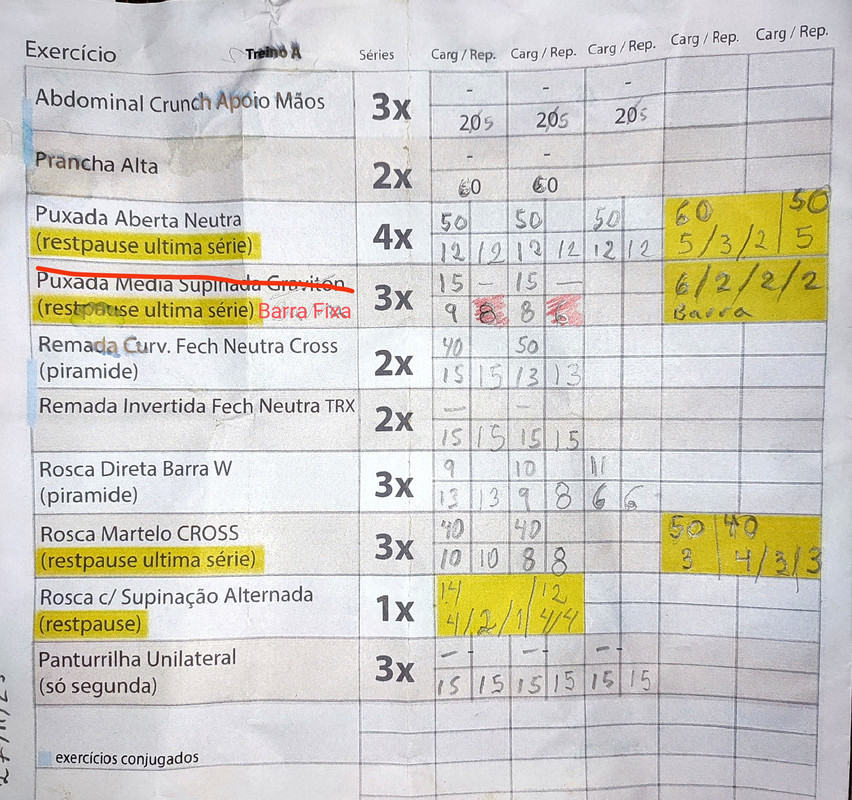 Exercício Treino A Séries Carg / Rep. Carg / Rep. Carg / Rep. Carg / Rep. Carg / Rep.
- - -
Abdominal Crunch Apoio Mãos 3x
20s 20s 20s
- -
Prancha Alta 2x
60 60
Puxada Aberta Neutra 50 50 50 60 50
(restpause ultima série) 4x 12 12 12 12 12 12 5/3/2 5
Puxada Media Supinada Graviton 15 - 15 - 6/2/2/2
(restpause ultima série) Barra Fixa 3x 9 8 8 6 Barra
Remada Curv. Fech Neutra Cross 40 50
(piramide) 2x 15 15 13 13
Remada Invertida Fech Neutra TRX 2x - -
15 15 15 15
Rosca Direta Barra W 9 10 11
(piramide) 3x 13 13 9 8 6 6
Rosca Martelo CROSS 40 40 50 40
(restpause ultima série) 3x 10 10 8 8 3 4/3/3
Rosca c/ Supinação Alternada 14 12
(restpause) 1x 4/2/1 4/4
Panturrilha Unilateral - - -
(só segunda) 3x 15 15 15 15 15 15
exercícios conjugados